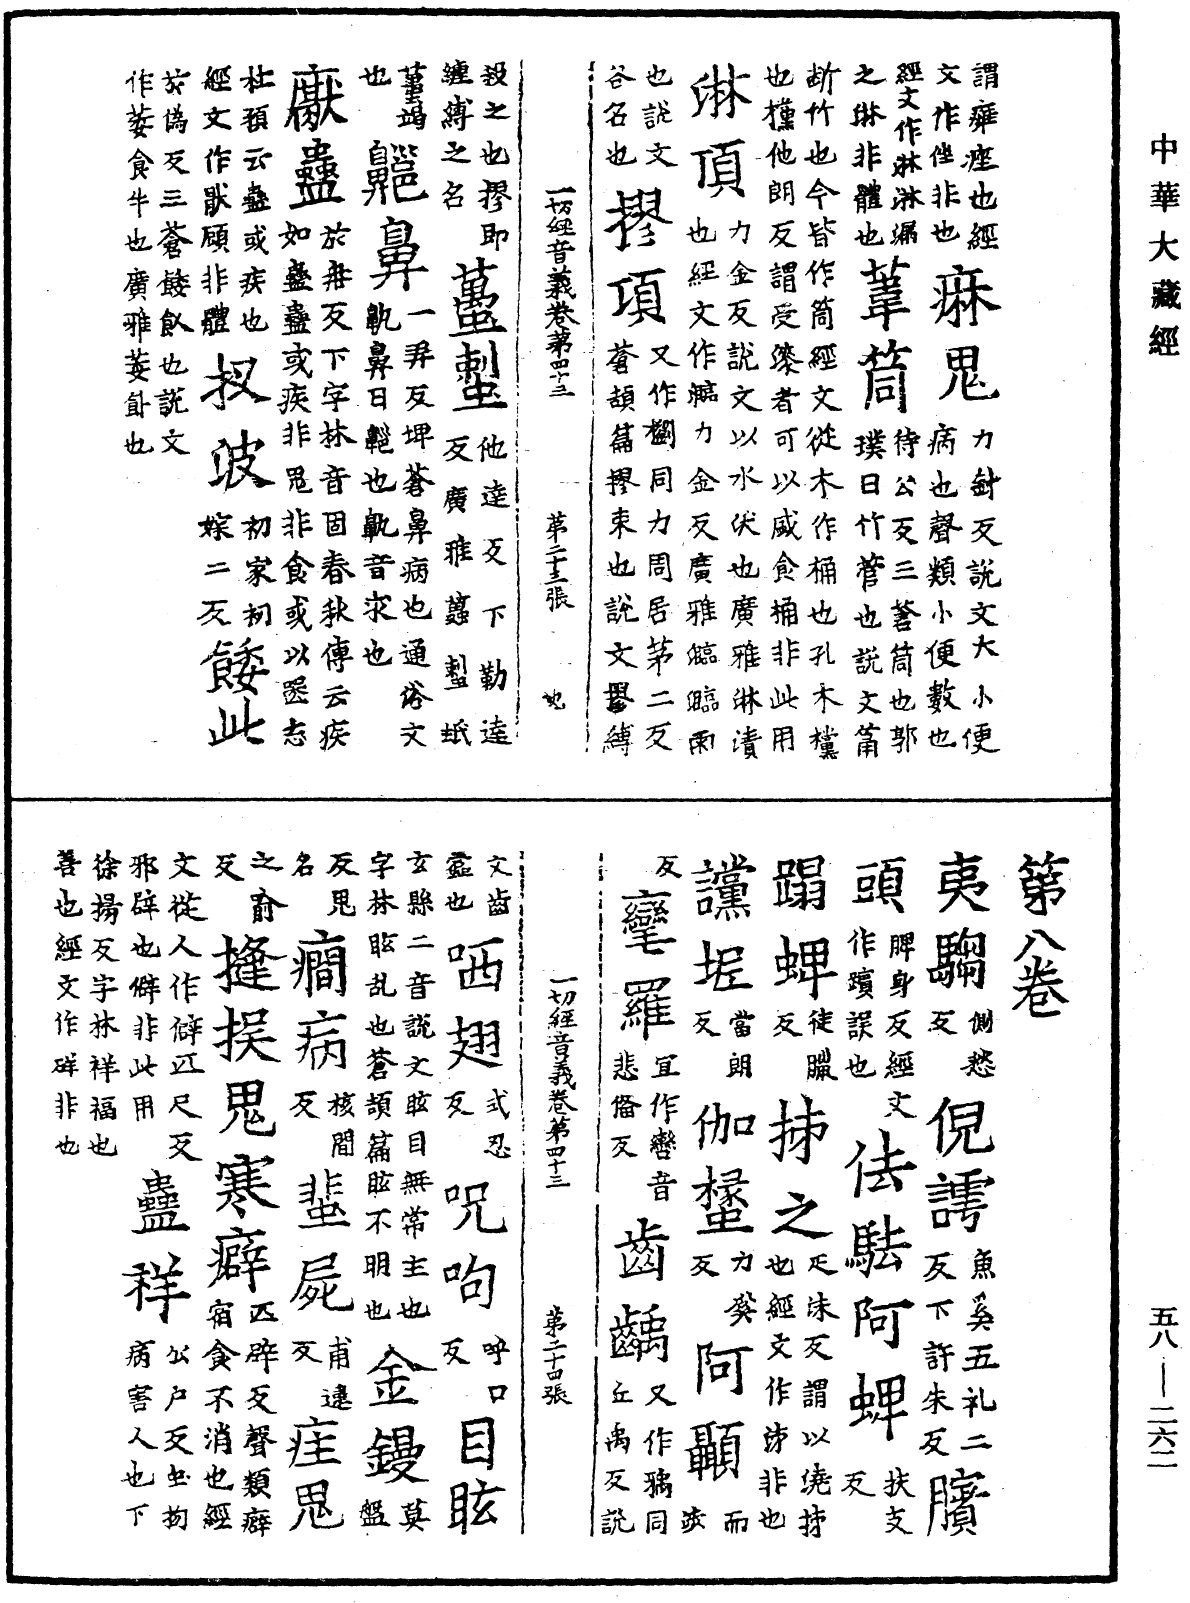 中華大藏經
謂㾮痤也經
文作㾗非也 痳鬼 力針反說文大小便
病也聲類小便數也
經文作淋淋漏
之琳非體也 葦筒 待公反三蒼筒也郭
璞曰竹管也說文䈵
斷竹也今皆作筒經文從木作桶也孔木欓
也欓他朗反謂受漆者可以盛食桶非此用
淋頂 力金反說文以水伏也廣雅淋漬
也經文作𤃢力金反廣雅𤃢𤃢雨
也說文
谷名也 摎項 又作𢷾同力周居茅二反
蒼頡篇摎束也說文摎縛
一切經音義卷第四十三 第二十三張 也
殺之也摎即
纏縛之名 蠆䗶 他達反下勒達
反廣雅蠚䗶蚔
蠆蝎
也 齆鼻 一弄反埤蒼鼻病也通俗文
鼽鼻曰齆也鼽音求也
猒蠱 於冉反下字林音固春秋傳云疾
如蠱蠱或疾非鬼非食或以器志
杜預云蠱或疾也
經文作猒頋非體 扠波 初家初
㛗二反 餧此
於僞反三蒼餧飤也說文
作萎食牛也廣雅萎飤也
第八卷
夷騶 側愁
反 倪謣 魚奚五礼二
反下許朱反 臏
頭 脾身反經文
作躓誤也 佉駄阿蜱 扶支
反
蹋蜱 徒臘
反 抪之 疋沫反謂以澆抪
也經文作㳍非也
讜坭 當朗
反 伽蠜 力癸
反 阿顳 而涉
反
孿羅 宜作巒音
悲俻反 齒齲 又作𤘐同
丘禹反說
一切經音義卷第四十三 第二十四張
文齒
蠹也 哂翅 式忍
反 呪呴 呼口
反 目眩
玄縣二音說文眩目無常主也
字林眩亂也蒼頡篇眩不明也 金鏝 莫盤
反鬼
名 癎病 核間
反 蜚屍 甫違
反 㾏鬼
之俞
反 摓捑鬼寒癖 匹辟反聲類癖
宿食不消也經
文從人作僻匹尺反
邪辟也僻非此用 蠱祥 公戶反虫拘
病害人也下
徐揚反字林祥福也
善也經文作𥒚非也
五八—二六二